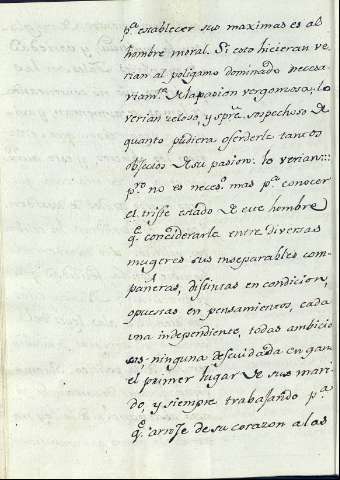 p.ª establecer sus maximas es al
hombre moral. Si esto hicieran ve
rian al poligamo dominado necesa
riam.te de la pasion vergonzosa, lo
verian zeloso, y spre sospechoso de
quanto pudiera ofenderle tantos
objectos de su pasion: lo verian:::
p.ro no es neces.º mas p.ª conocer
el triste estado de este hombre
q. considerarle entre diversas
mugeres sus inseparables com-
pañeras, distintas en condicion,
opuestas en pensamientos, cada
una independiente, todas ambicio
sas ninguna descuidada en gan
el primer lugar de su mari-
do, y siempre trabajando p.ª
q. arroje de su corazon a las